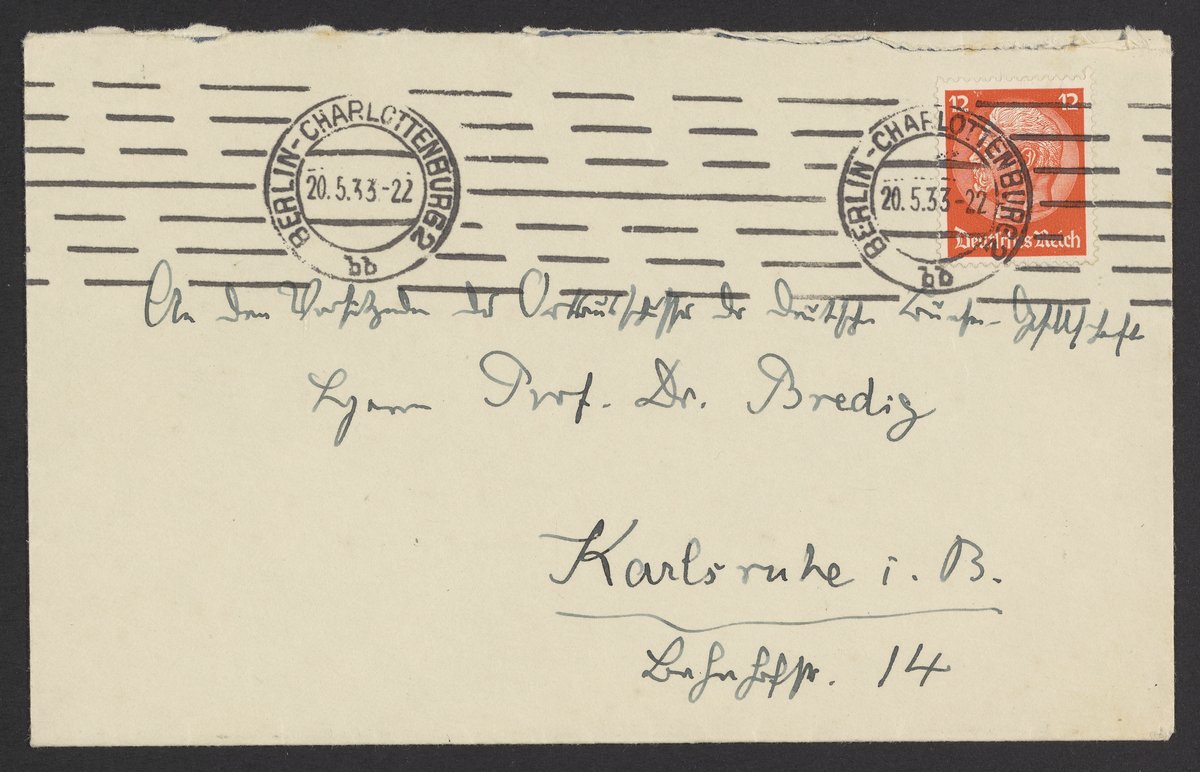 BERLIN-CHARLOTTENBURG 2
20.5.33.-22
bb
BERLIN-CHARLOTTENBURG 2
20.5.33-22
bb
12 12
Deutsches Reich
An den Vorsitzenden des Ortsausschusses der Deutschen Bunsen-Gesellschaft
Herrn Prof. Dr. Bredig
Karlsruhe i. B.
Bahnhofstr. 14